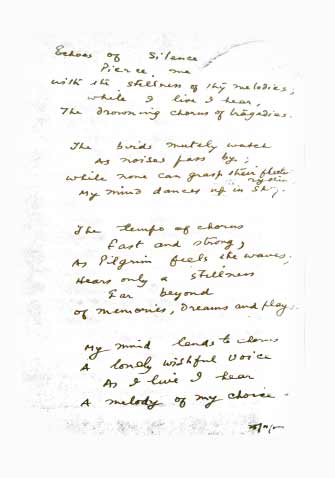 Echoes of Silence
Pierce me
with the stillness of thy melodies,
while I live I hear,
The drowning chorus of tragedies.
The birds mutely watch
As noises pass by;
while none can grasp their fleeting
My mind dances up in sky.
The tempo of chorus
Fast and strong,
As Pilgrim feels the waves,
Hears only a stillness
Far beyond
of memories, Dreams and plays.
My mind lends to
A lonely wishful voice
As I live I hear
A melody of my choice.